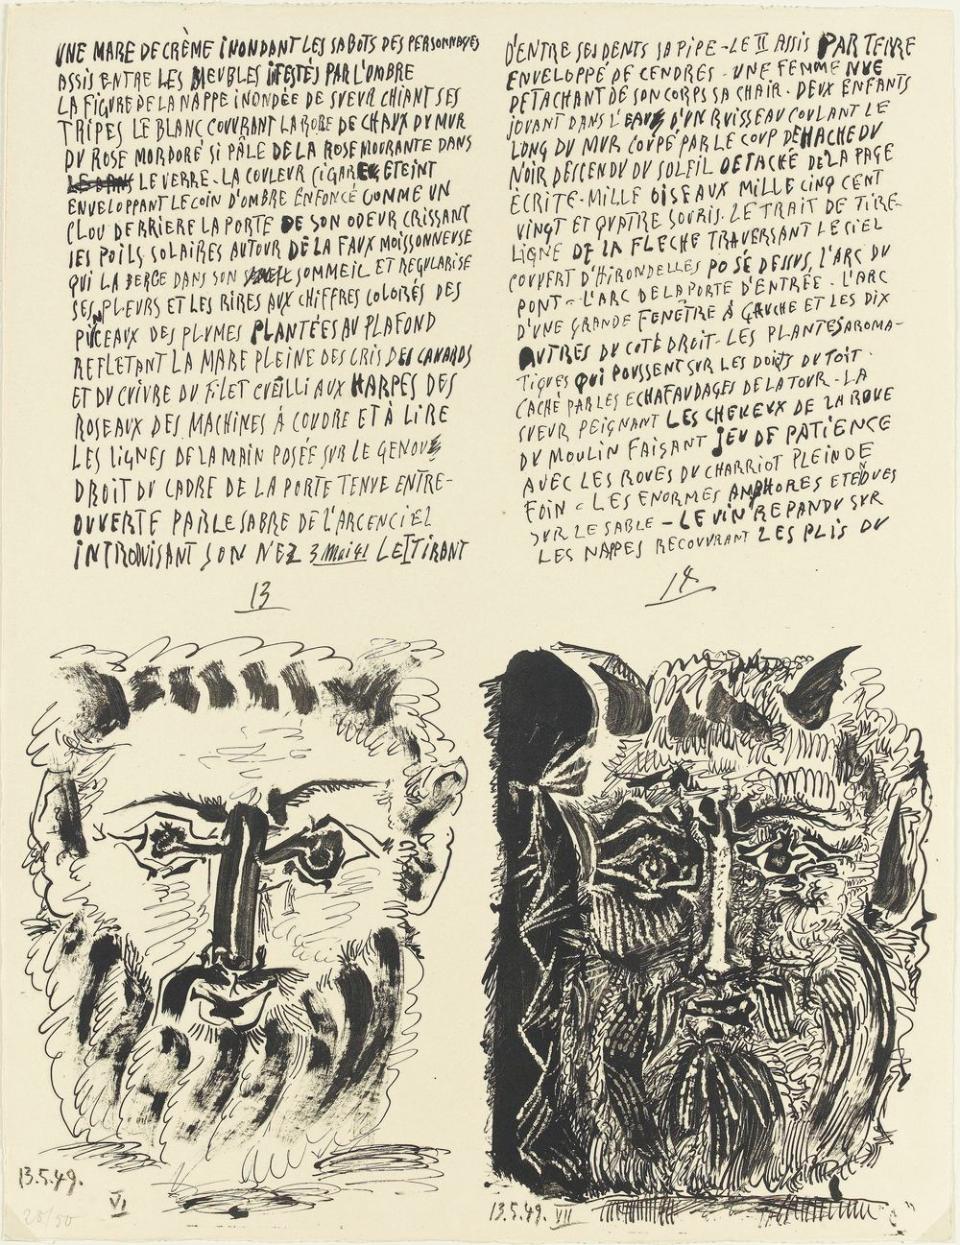 UNE MARE DE CRÈME INONDANT LES SABOTS DES PERSONNAGES
ASSIS ENTRE LES MEUBLES IFESTÉS PAR L'OMBRE
LA FIGURE DE LA NAPPE INONDÉE DE SUEUR CHIANT SES
TRIPES LE BLANC COUVRANT LA ROBE DE CHAUX DU MUR
DU ROSE MORDORÉ SI PÂLE DE LA ROSE MOURANTE DANS
LE VERRE - LA COULEUR CIGARE ETEINT
ENVELOPPANT LE COIN D'OMBRE ENFONCÉ COMME UN
CLOU DERRIERE LA PORTE DE SON ODEUR CRISSANT
LES POILS SOLAIRES AUTOUR DE LA FAUX MOISSONNEUSE
QUI LA BERCE DANS SON SOMMEIL ET REGULARISE
SES PLEURS ET LES RIRES AUX CHIFFRES COLORÉS DES
PINCEAUX DES PLUMES PLANTÉES AU PLAFOND
REFLETANT LA MARE PLEINE DES CRIS DES CANARDS
ET DU CUIVRE DU FILET CUEILLI AUX HARPES DES
ROSEAUX DES MACHINES À COUDRE ET À LIRE
LES LIGNES DE LA MAIN POSÉE SUR LE GENOU
DROIT DU CADRE DE LA PORTE TENUE ENTRE-
OUVERTE PAR LE SABRE DE L'ARC EN CIEL
INTRODUISANT SON NEZ 3 Mai 41 LE I TIRANT
13
D'ENTRE SES DENTS SA PIPE - LE II ASSIS PAR TERRE
ENVELOPPÉ DE CENDRES - UNE FEMME NUE
DETACHANT DE SON CORPS SA CHAIR - DEUX ENFANTS
JOUANT DANS L'EAU D'UN RUISSEAU COULANT LE
LONG DU MUR COUPÉ PAR LE COUP DE HACHE DU
NOIR DESCENDU DU SOLEIL DETACHÉ DE LA PAGE
ÉCRITE - MILLE OISEAUX MILLE CINQ CENT
VINGT ET QUATRE SOURIS - LE TRAIT DE TIRE-
LIGNE DE LA FLECHE TRAVERSANT LE CIEL
COUVERT D'HIRONDELLES POSÉ DESSUS, L'ARC DU
PONT - L'ARC DE LA PORTE D'ENTRÉE - L'ARC
D'UNE GRANDE FENÊTRE À GAUCHE ET LES DIX
AUTRES DU COTÉ DROIT - LES PLANTES AROMA-
TIQUES QUI POUSSENT SUR LES DOIGTS DU TOIT
CACHÉ PAR LES ECHAFAUDAGES DE LA TOUR - LA
SUEUR PEIGNANT LES CHEVEUX DE LA ROUE
DU MOULIN FAISANT JEU DE PATIENCE
AVEC LES ROUES DU CHARRIOT PLEIN DE
FOIN - LES ENORMES AMPHORES
SUR LE SABLE - LE VIN REPANDU SUR
LES NAPPES RECOUVRANT LES PLIS DU
14
13.5.49.
VI
28/50
13.5.49. VII